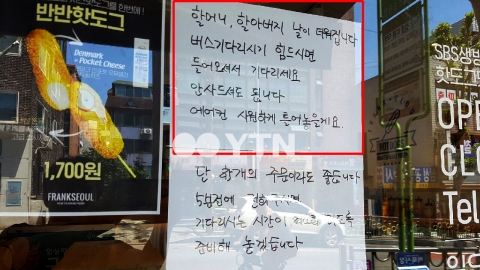 반반핫도그
Denmark
+ Pocket Cheese
1,700원
FRANKSEOUL
할머니, 할아버지 날이 더워집니다
버스기다리시기 힘드시면
들어오셔서 기다리세요
안사드셔도 됩니다
에어컨 시원하게 틀어놓을게요.
YTN
단, 한개의 주문이라도 좋습니다
5분전에 전화주시면
기다리시는 시간이
준비해 놓겠습니다
SBS생방
핫도그
OPE
CLO
Tel